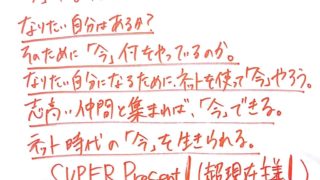 なりたい自分はあるか?
そのために「今」何をやっているのか。
なりたい自分になるために、ネットを使って「今」やろう。
志高い仲間と集まれば、「今」できる。
ネット時代の「今」を生きられる。
SUPER Present!(超現在様!)